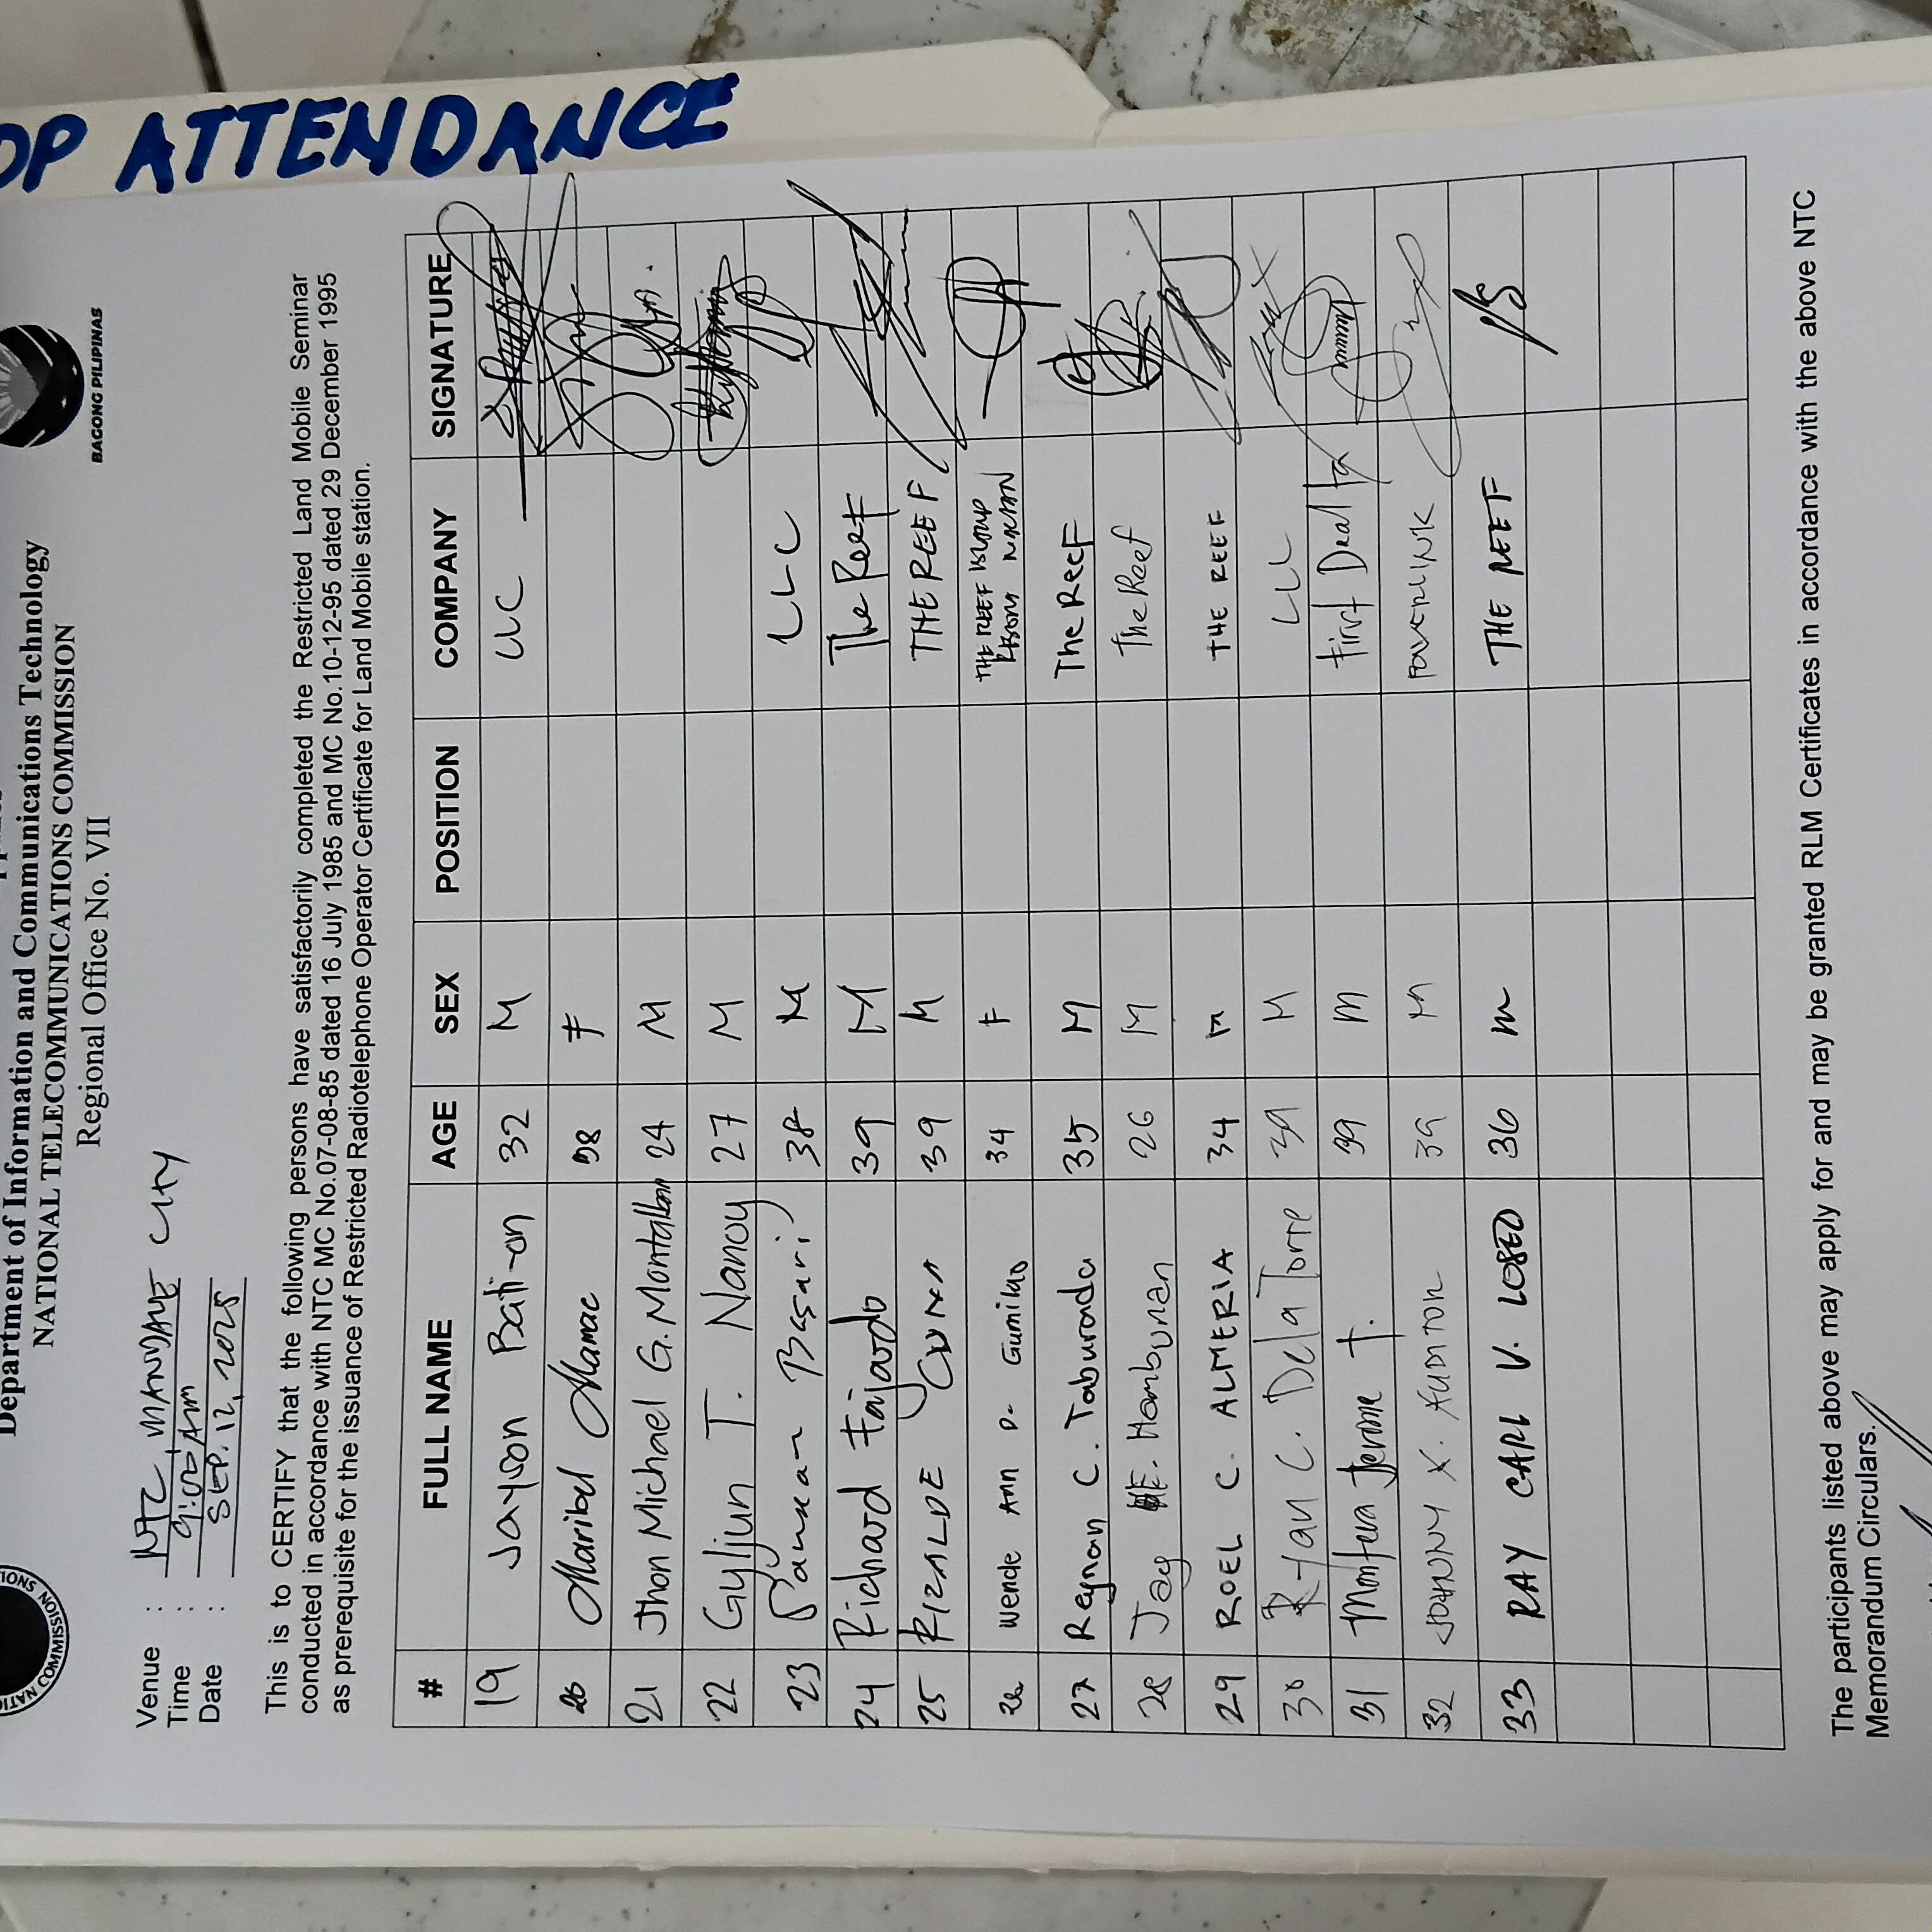 OP ATTENDANCE
BAGONG PILIPINAS
Department of Information and Communications Technology
NATIONAL TELECOMMUNICATIONS COMMISSION
Regional Office No. VII
Venue : NTC, MANDAUE CITY
Time : 9:00 AM
Date : SEP. 12, 2025
This is to CERTIFY that the following persons have satisfactorily completed the Restricted Land Mobile Seminar
conducted in accordance with NTC MC No.07-08-85 dated 16 July 1985 and MC No.10-12-95 dated 29 December 1995
as prerequisite for the issuance of Restricted Radiotelephone Operator Certificate for Land Mobile station.
# FULL NAME AGE SEX POSITION COMPANY SIGNATURE
19 Jayson Bati-on 32 M
20 Maribel Alamac 38 F
21 Jhon Michael G. Montalban 24 M
22 Gyljun T. Nancy 27 M
23 38 M LLC
24 Richard Fajardo 39 M The Reef
25 RIZALDE 39 M THE REEF
26 Wende Ann D. Gumilao 34 F THE REEF ISLAND
27 Reynan C. Taburonda 35 M The Reef
28 Jay E. Hambunan 26 M The Reef
29 ROEL C. ALMERIA 34 M THE REEF
30 Ryan C. Dela Torre 39 M
31 Jerome T. 39 M First Deal
32 JOHNNY 39 M POWERLINK
33 RAY CARL V. 36 M THE REEF
The participants listed above may apply for and may be granted RLM Certificates in accordance with the above NTC
Memorandum Circulars.